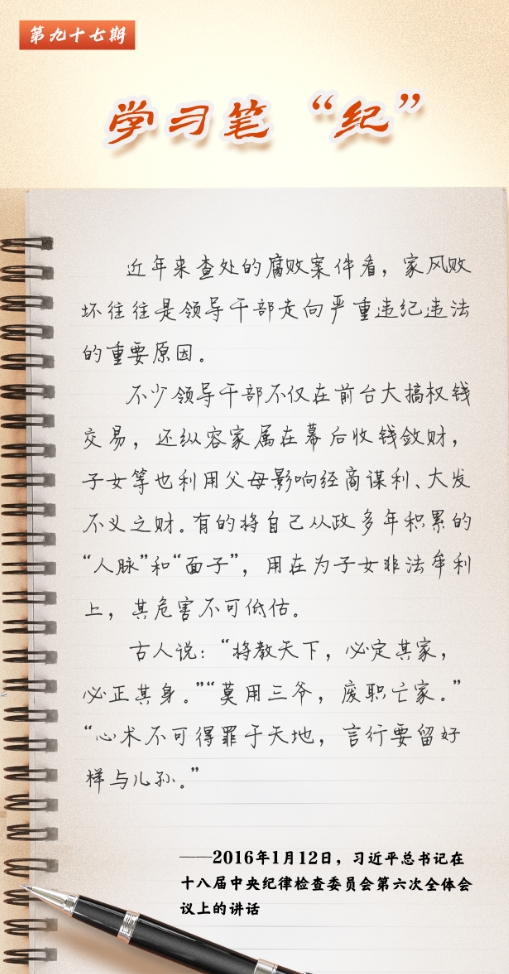 第九十七期
学习笔“纪”
近年来查处的腐败案件看，家风败
坏往往是领导干部走向严重违纪违法
的重要原因。
不少领导干部不仅在前台大搞权钱
交易，还纵容家属在幕后收钱敛财，
子女等也利用父母影响经商谋利、大发
不义之财。有的将自己从政多年积累的
“人脉”和“面子”，用在为子女非法牟利
上，其危害不可低估。
古人说：“将教天下，必定其家，
必正其身。”“莫用三爷，废职亡家。”
“心术不可得罪于天地，言行要留好
样与儿孙。”
——2016年1月12日，习近平总书记在
十八届中央纪律检查委员会第六次全体会
议上的讲话